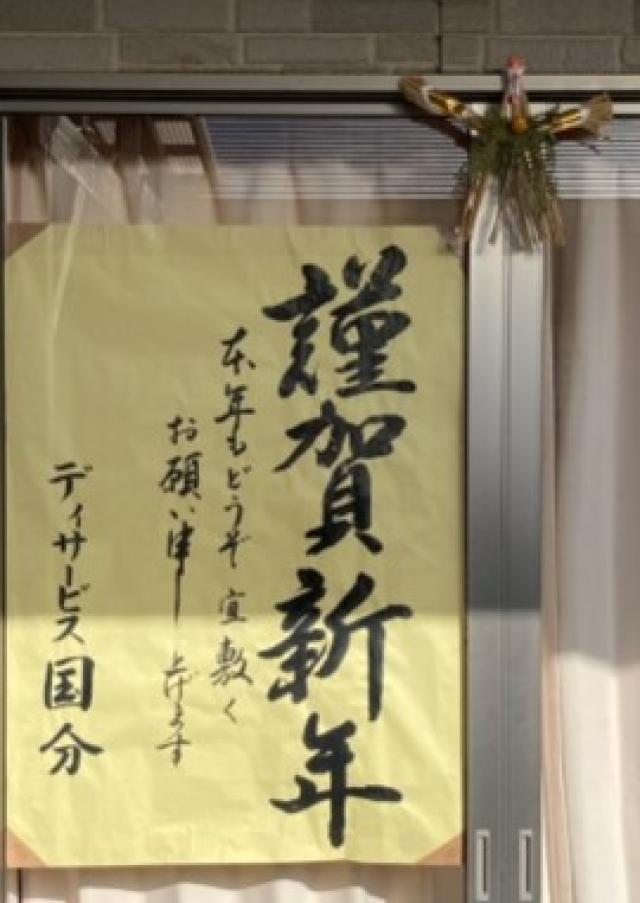 謹賀新年
本年もどうぞ宜敷く
お願い申し上げます
デイサービス国分